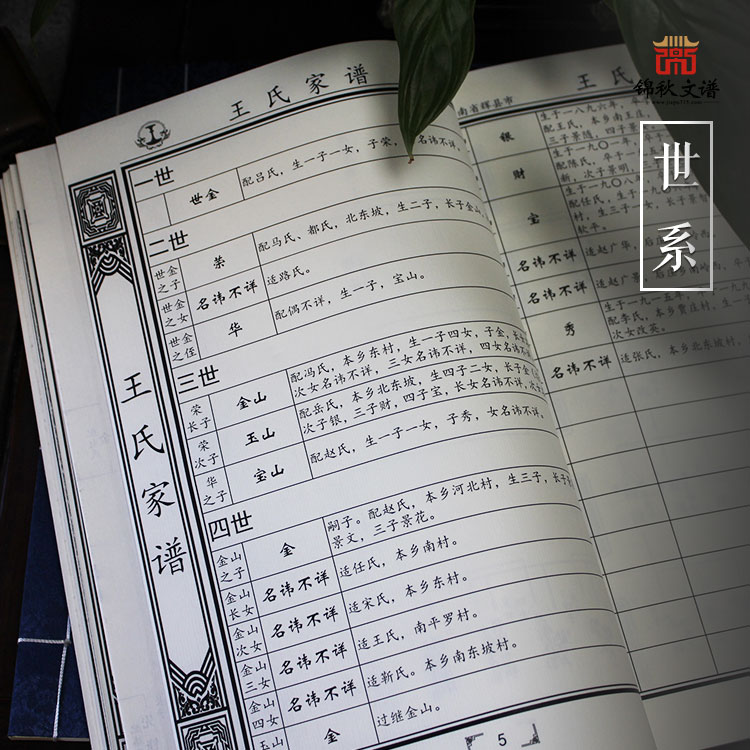 锦秋文谱
www.jiapu715.com
世系
王氏家谱
王氏家谱
一世
世金 配吕氏，生一子一女，子荣，名讳不详，
二世
世金之子 荣 配马氏、都氏，北东坡，生二子，长子金山，
世金之女 名讳不详 适路氏。
世金之侄 华 配偶不详，生一子，宝山。
三世
荣长子 金山 配冯氏，本乡东村，生一子四女，子金，长
次女名讳不详，三女名讳不详，四女名讳不
荣次子 玉山 配岳氏，本乡北东坡，生四子二女，长子金
次子银，三子财，四子宝，长女名讳不详，
华之子 宝山 配赵氏，生一子一女，子秀，女名讳不详。
四世
金山之子 金 嗣子。配赵氏，本乡河北村，生三子，长子
景文，三子景花。
金山长女 名讳不详 适任氏，本乡南村。
金山次女 名讳不详 适宋氏，本乡东村。
金山三女 名讳不详 适王氏，南平罗村。
金山四女 名讳不详 适靳氏。本乡南东坡村。
玉山 金 过继金山。
5
王氏
南省辉县市
银 生于一八九六年，
配王氏，本乡南王庄，
财 生于一九〇一年，
配陈氏，卒于一
宝 生于一九〇八
配任氏，生于
村，生三子一女，长子景
名讳不详 适赵广华，
名讳不详 适赵广
秀 生于一九一五年，
配李氏，本乡贾庄村，生一
次女改英。
名讳不详 适张氏，本乡